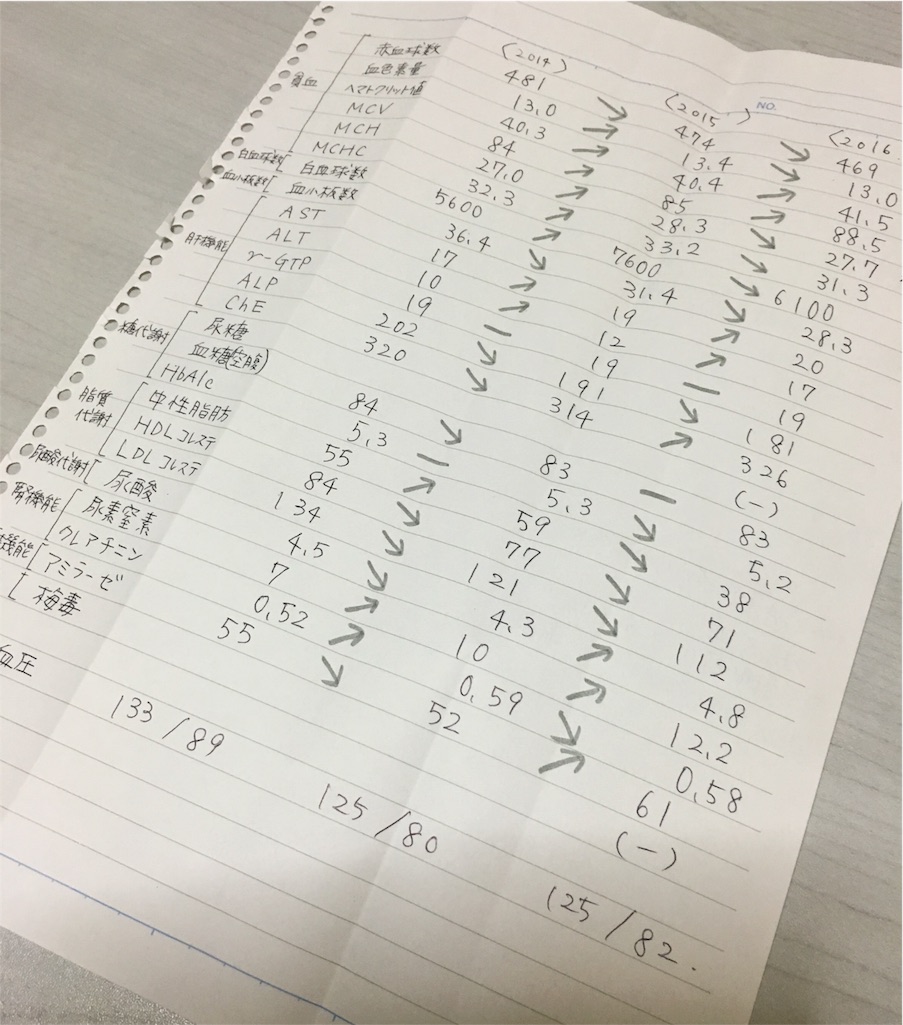 〈2014〉 〈2015〉 〈2016
貧血 赤血球数 481 ↘ 474 ↘ 469
血色素量 13.0 ↗ 13.4 ↗ 13.0
ヘマトクリット値 40.3 ↗ 40.4 ↗ 41.5
MCV 84 ↗ 85 ↗ 88.5
MCH 27.0 ↗ 28.3 ↘ 27.7
MCHC 32.3 ↗ 33.2 ↘ 31.3
白血球数 白血球数 5600 ↗ 7600 ↘ 6100
血小板数 血小板数 36.4 ↘ 31.4 ↘ 28.3
肝機能 AST 17 ↗ 19 ↗ 20
ALT 10 ↗ 12 ↗ 17
γ-GTP 19 — 19 — 19
ALP 202 ↘ 191 ↘ 181
ChE 320 ↘ 314 ↗ 326
糖代謝 尿糖 (-)
血糖(空腹) 84 ↘ 83 — 83
HbA1c 5.3 — 5.3 ↘ 5.2
脂質代謝 中性脂肪 55 ↗ 59 ↘ 38
HDLコレステ 84 ↘ 77 ↘ 71
LDLコレステ 134 ↘ 121 ↘ 112
尿酸代謝 尿酸 4.5 ↘ 4.3 ↗ 4.8
腎機能 尿素窒素 7 ↗ 10 ↗ 12.2
クレアチニン 0.52 ↗ 0.59 ↘ 0.58
機能 アミラーゼ 55 ↘ 52 ↗ 61
梅毒 (-)
血圧 133/89 125/80 125/82.
NO.